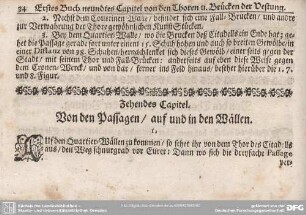 34 Erstes Buch neundtes Capitel von den Thoren u. Brücken der Vestung.
2. Nechst dem Courtinen Wall, befindet sich ein Fall-Brücken, und andre
zur Verwahrung der Thore gewöhnlichen Kunst-Stücken.
8. Bey dem Quartier-Walle, wo die Brücken deß Citadells ein Ende hat, ge-
het die Passage gerade fort unter einem 15. Schuh hohen und auch so breiten Gewölb in
einer Distanz von 38. Schuhen
der Stadt, mit seinem Thor und Fall-Brücken: anderseits auf eben diese Weise gegen
dem Cronen-Werck, und von dar, ferner ins Feld hinaus, besihet hierüber die 1. 7.
und 8. Figur.
Zehendes Capitel.
Von den Passagen, auf und in den Wällen.
1.
Auf den Quartier-Wällen zu kommen, so sehet ihr von dem Thor des Citadells
aus, den Weg schnurgrad vor Eurer: Dann wo sich die dreyfache Passage